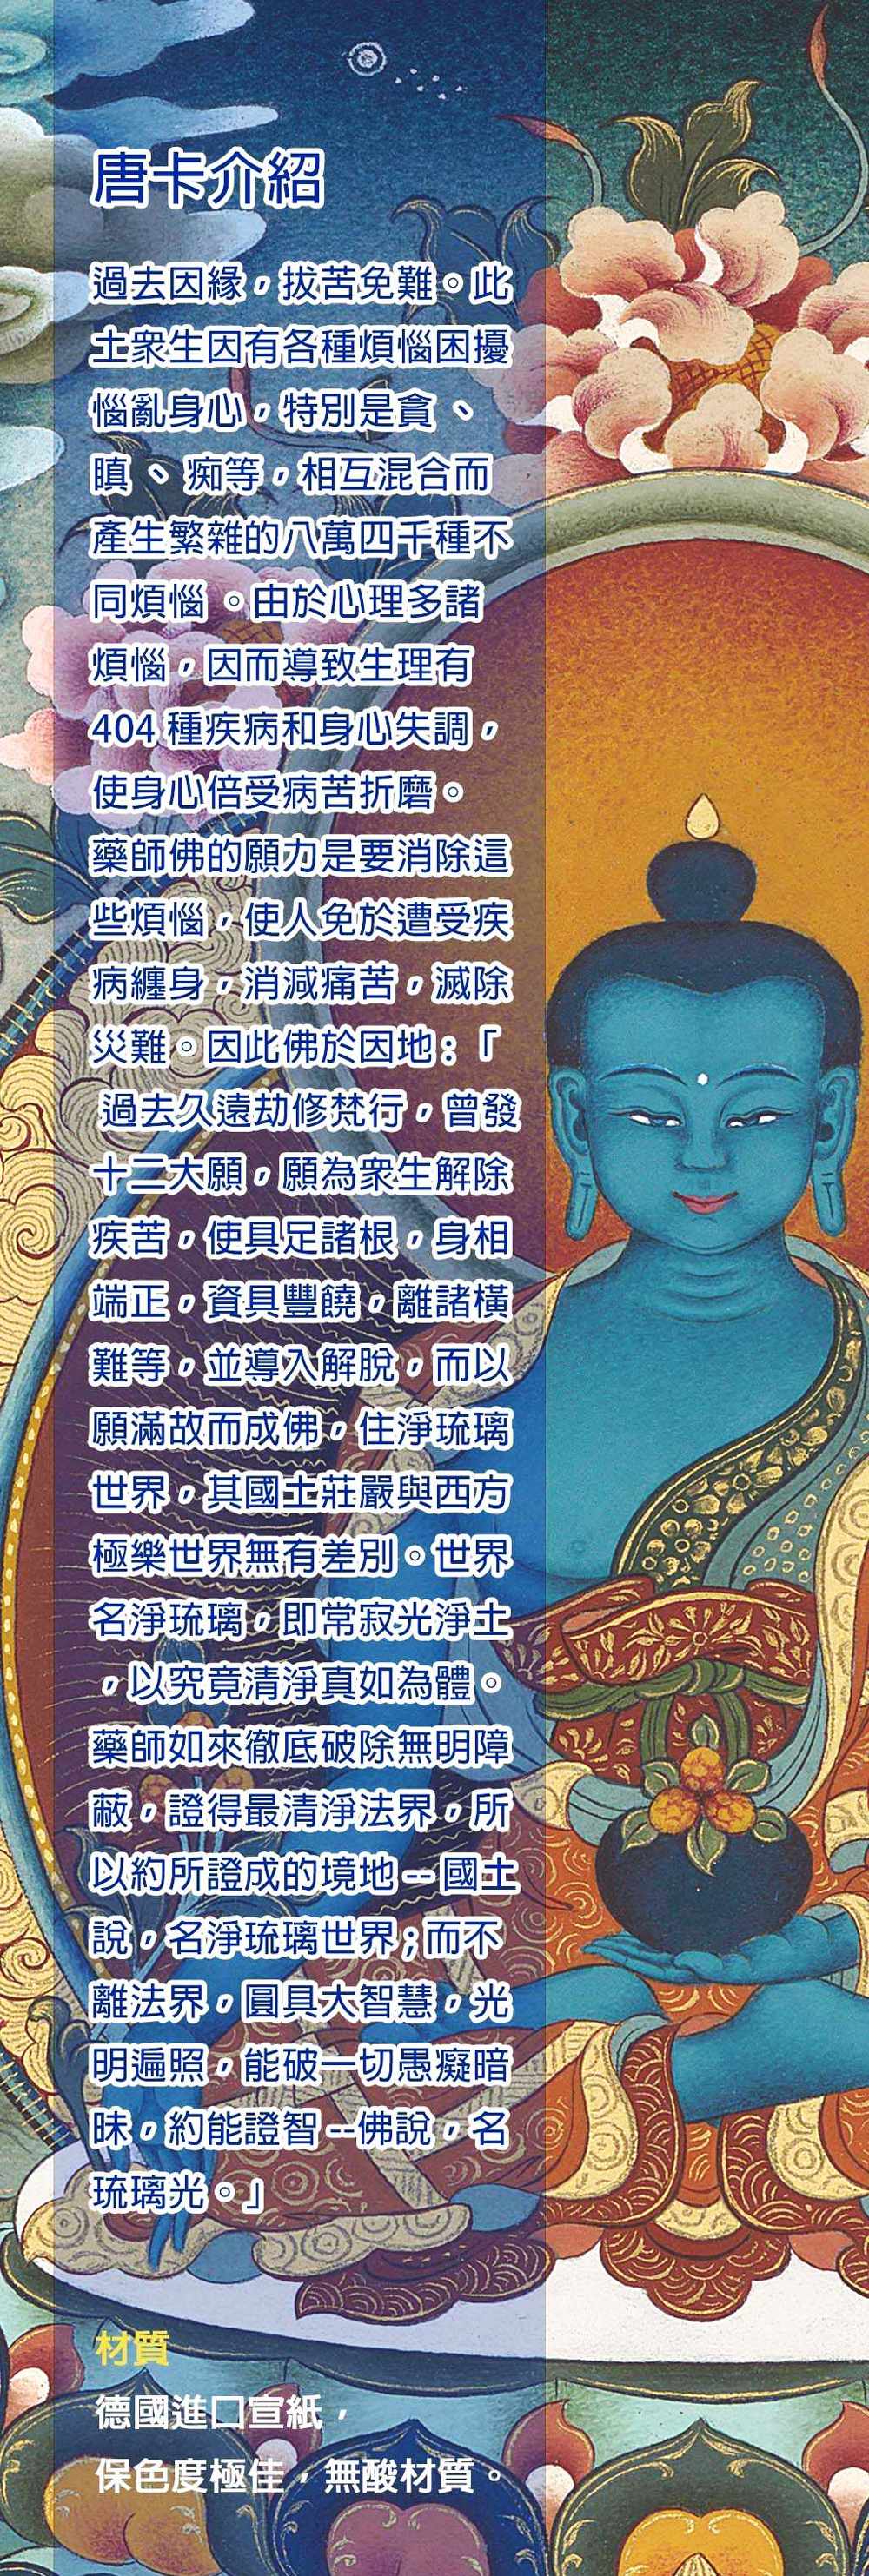 唐卡介紹
過去因緣，拔苦免難。此
土衆生因有各種煩惱困擾
惱亂身心，特別是貪、
瞋、痴等，相互混合而
產生繁雜的八萬四千種不
同煩惱。由於心理多諸
煩惱，因而導致生理有
404 種疾病和身心失調，
使身心倍受病苦折磨。
藥師佛的願力是要消除這
些煩惱，使人免於遭受疾
病纏身，消減痛苦，滅除
災難。因此佛於因地:「
過去久遠劫修梵行，曾發
十二大願，願為衆生解除
疾苦，使具足諸根，身相
端正，資具豐饒，離諸橫
難等，並導入解脫，而以
願滿故而成佛，住淨琉璃
世界，其國土莊嚴與西方
極樂世界無有差別。世界
名淨琉璃，即常寂光淨土
，以究竟清淨真如為體。
藥師如來徹底破除無明障
蔽，證得最清淨法界，所
以約所證成的境地--國土
說，名淨琉璃世界;而不
離法界，圓具大智慧，光
明遍照，能破一切愚癡暗
昧，約能證智--佛說，名
琉璃光。」
材質
德國進口宣紙，
保色度極佳，無酸材質。